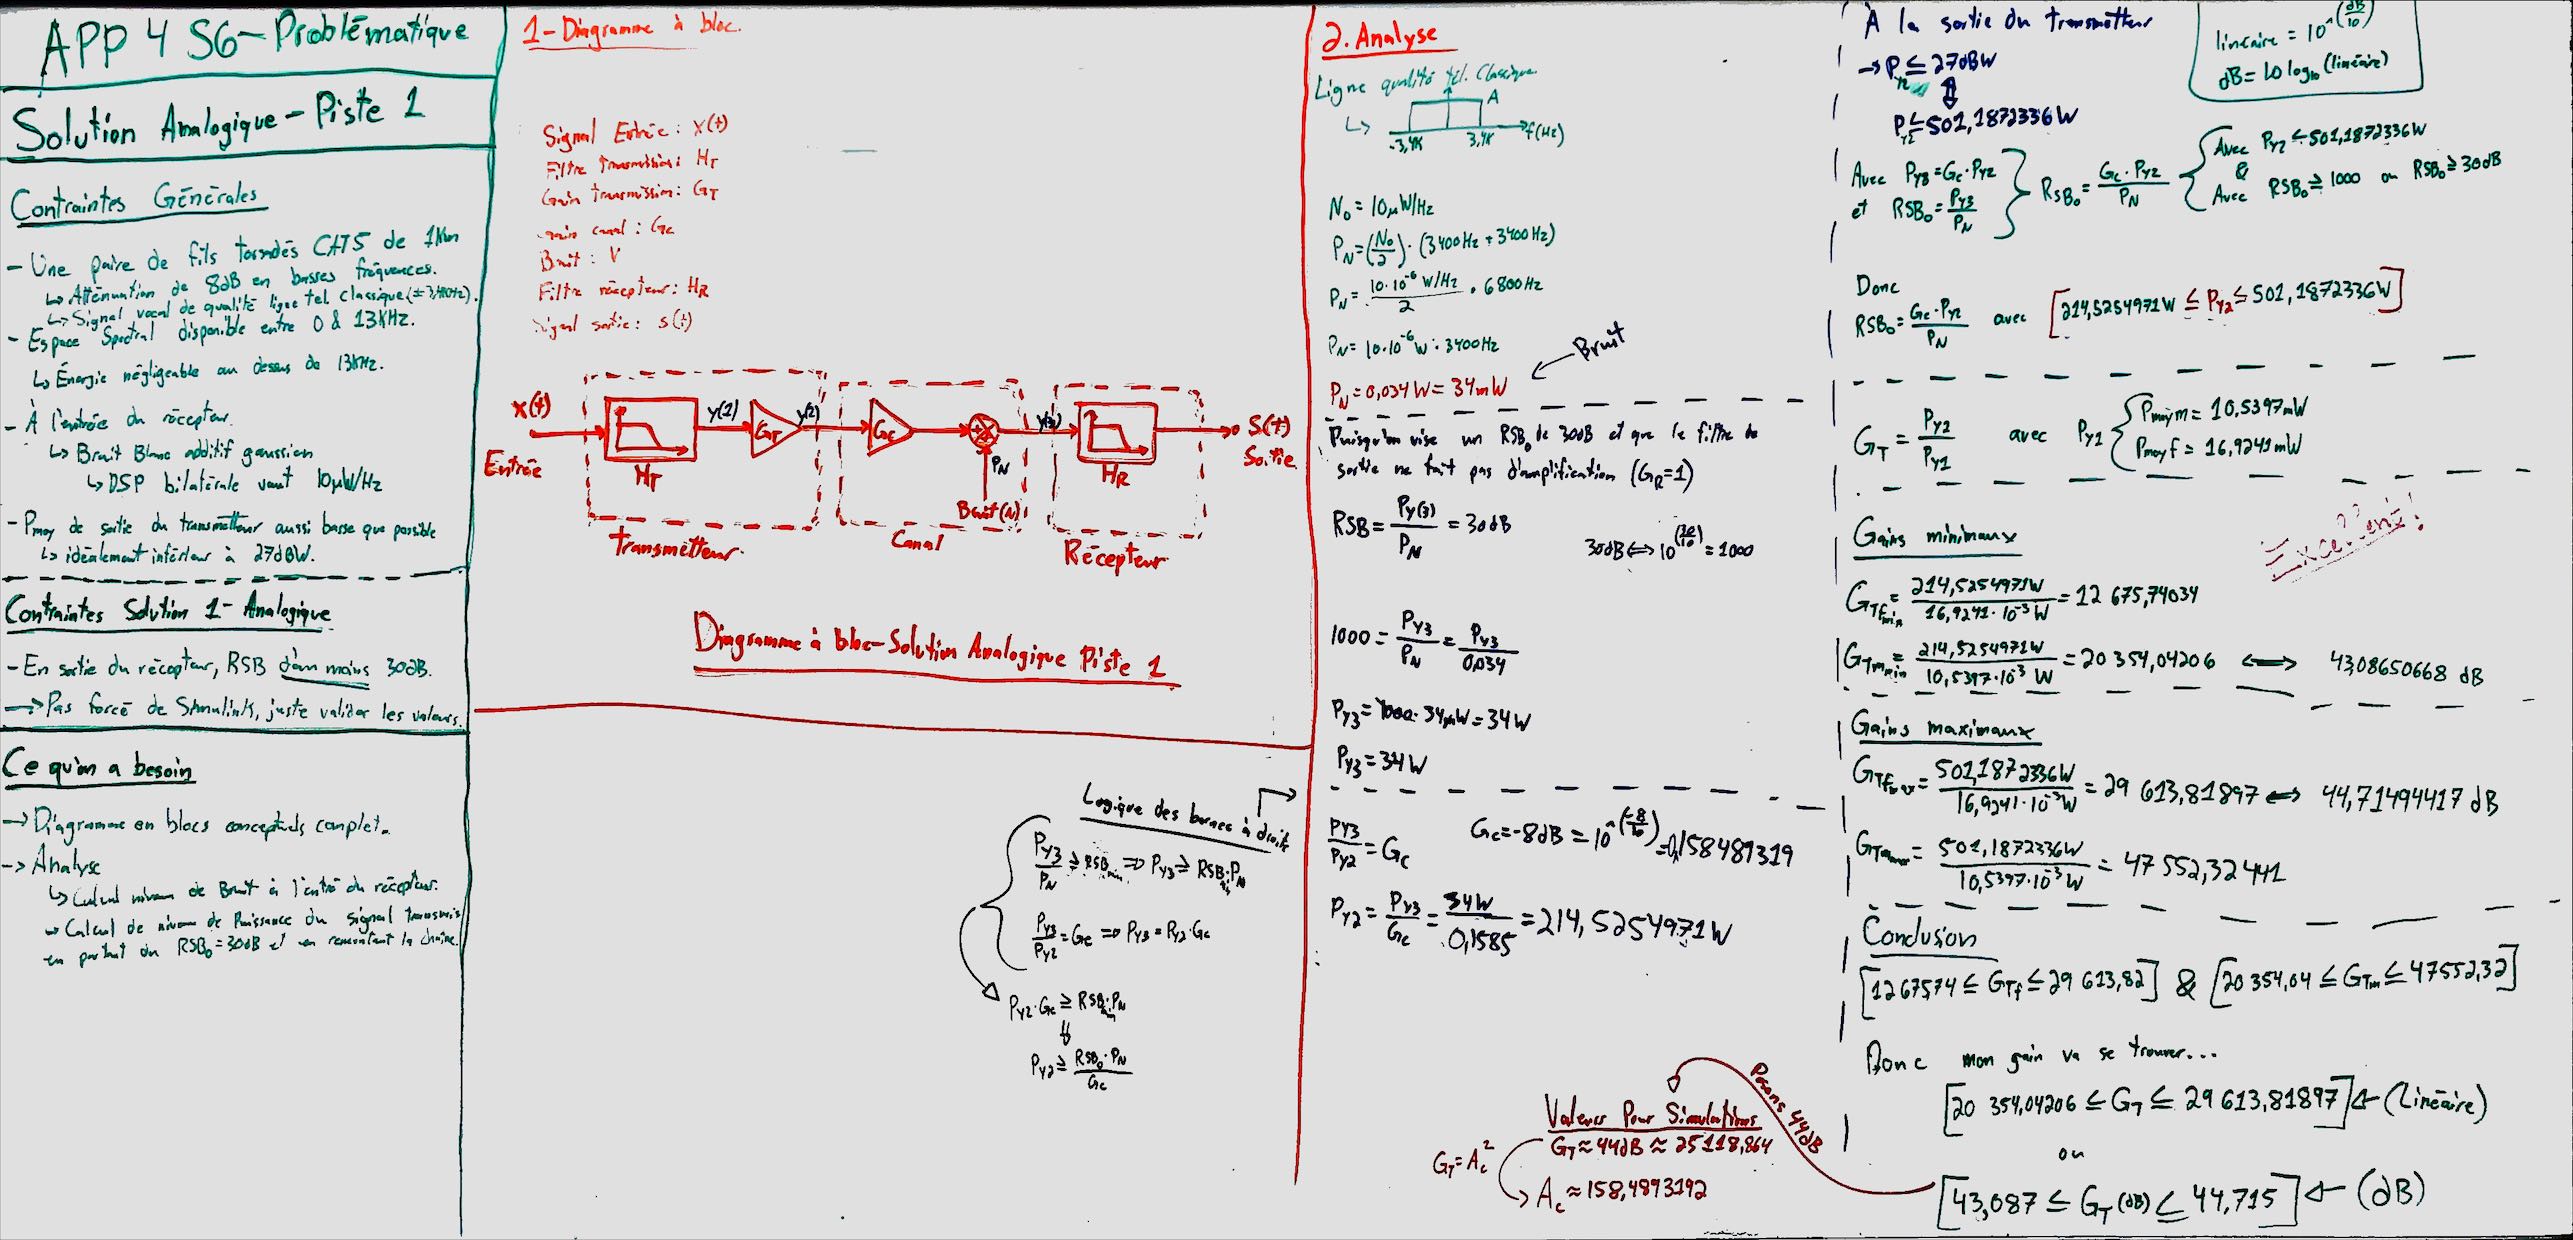 APP 4 S6 - Problématique
Solution Analogique - Piste 1
Contraintes Générales
- Une paire de fils torsadés CAT5 de 1Km
↳ Atténuation de 8dB en basses fréquences.
↳ Signal vocal de qualité ligne tel. classique
- Espace Spectral disponible entre 0 & 13KHz.
↳ Énergie négligeable au dessus de 13KHz.
- À l'entrée du récepteur.
↳ Bruit Blanc additif gaussien
↳ DSP bilatérale vaut 10μW/Hz
- Pmoy de sortie du transmetteur aussi basse que possible
↳ idéalement inférieur à 27dBW.
Contraintes Solution 1 - Analogique
- En sortie du récepteur, RSB d'au moins 30dB.
→ Pas forcé de Simulink, juste valider les valeurs.
Ce qu'on a besoin
→ Diagramme en blocs conceptuels complet.
→ Analyse
↳ Calcul niveau de Bruit à l'entré du récepteur.
↳ Calcul de niveau de Puissance du signal transmis
en partant du RSB₀=30dB et en remontant la chaîne.
1- Diagramme à bloc.
Signal Entrée : x(t)
Filtre transmission : H_T
Gain transmission : G_T
gain canal : G_c
Bruit : V
Filtre récepteur : H_R
Signal sortie : s(t)
x(t)
Entrée
H_T
y(1)
G_T
y(2)
G_c
P_N
Bruit(N)
y(3)
H_R
S(t)
Sortie
Transmetteur
Canal
Récepteur
Diagramme à bloc - Solution Analogique Piste 1
Logique des bornes à droite
P_Y3/P_N ≥ RSB_min ⇒ P_Y3 ≥ RSB_min·P_N
P_Y3/P_Y2 = G_c ⇒ P_Y3 = P_Y2·G_c
P_Y2·G_c ≥ RSB_min·P_N
⇓
P_Y2 ≥ RSB₀·P_N/G_c
2. Analyse
Ligne qualité tél. Classique
A
-3,4K 3,4K f(Hz)
N₀ = 10μW/Hz
P_N = (N₀/2)·(3400Hz + 3400Hz)
P_N = (10·10⁻⁶ W/Hz)/2 · 6800Hz
P_N = 10·10⁻⁶ W · 3400Hz
P_N = 0,034 W = 34mW
Bruit
Puisqu'on vise un RSB₀ de 30dB et que le filtre de
sortie ne fait pas d'amplification (G_R=1)
RSB = P_Y(3)/P_N = 30dB
30dB ⇔ 10^(30/10) = 1000
1000 = P_Y3/P_N = P_Y3/0,034
P_Y3 = 1000·34mW = 34W
P_Y3 = 34W
P_Y3/P_Y2 = G_c
G_c = -8dB = 10^(-8/10) = 0,158489319
P_Y2 = P_Y3/G_c = 34W/0,1585 = 214,5254971W
Valeurs Pour Simulations
G_T ≈ 44dB ≈ 25118,864
G_T = A_c²
A_c ≈ 158,4893192
Posons 44dB
À la sortie du transmetteur
→ P ≤ 27dBW
P_Y2 ≤ 501,1872336W
linéaire = 10^(dB/10)
dB = 10 log₁₀(linéaire)
Avec P_Y3 = G_c·P_Y2
et RSB₀ = P_Y3/P_N
RSB₀ = G_c·P_Y2/P_N
Avec P_Y2 ≤ 501,1872336W
&
Avec RSB₀ ≥ 1000 ou RSB₀ ≥ 30dB
Donc
RSB₀ = G_c·P_Y2/P_N avec [214,5254971W ≤ P_Y2 ≤ 501,1872336W]
G_T = P_Y2/P_Y1 avec P_Y1 { Pmoym = 10,5397mW
Pmoyf = 16,9241mW
Excellent!
Gains minimaux
G_Tfmin = 214,5254971W/16,9241·10⁻³W = 12 675,74034
G_Tmmin = 214,5254971W/10,5397·10⁻³ W = 20 354,04206 ⟺ 43,08650668 dB
Gains maximaux
G_Tfmax = 501,1872336W/16,9241·10⁻³W = 29 613,81897 ⟺ 44,71494417 dB
G_Tmmax = 501,1872336W/10,5397·10⁻³W = 47 552,32441
Conclusion
[12 675,74 ≤ G_Tf ≤ 29 613,82] & [20 354,04 ≤ G_Tm ≤ 47552,32]
Donc mon gain va se trouver...
[20 354,04206 ≤ G_T ≤ 29 613,81897] ← (Linéaire)
ou
[43,087 ≤ G_T (dB) ≤ 44,715] ← (dB)